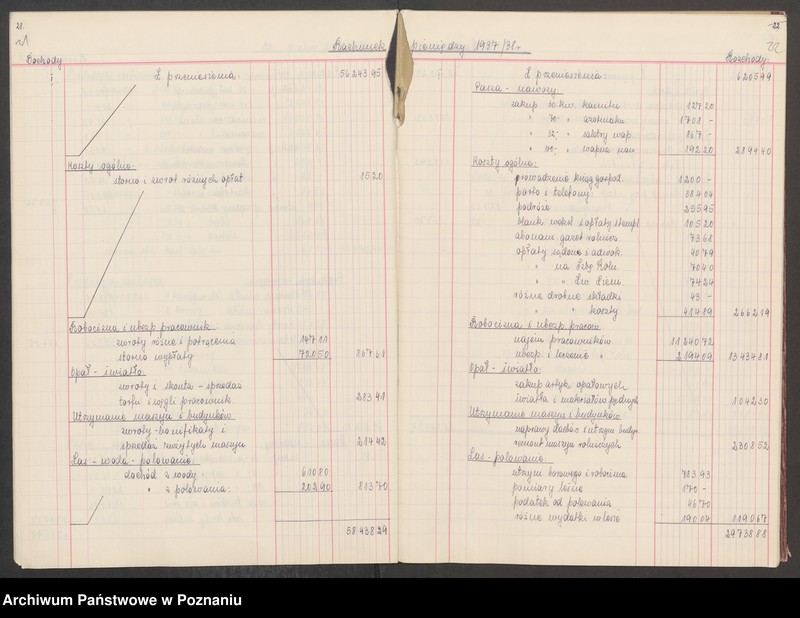 21
Rachunek pieniędzy 1937/38 r.
Dochody
Z przeniesienia. 56243 95
Koszty ogólne:
storno i zwrot różnych opłat 15 20
Robocizna i ubezp. pracownik.
zwroty różne i potrącenia 147 11
storno wypłaty 720 50 867 61
Opał - światło
zwroty i skonta - sprzedaż
torfu i węgli pracownik. 283 91
Utrzymanie maszyn i budynków
zwroty - bonifikaty i
sprzedaż zużytych maszyn 214 42
Las - woda - polowanie:
dochód z wody. 610 80
" z polowania. 202 90 813 70
58438 29
22
22
Rozchody.
Z przeniesienia: 6205 99
Pasza - nawozy:
zakup kainitu 127 20
" " azotniaku 1708 -
" " saletry wap. 867 -
" " wapna 192 20 2894 40
Koszty ogólne:
prowadzenie ksiąg gospod. 1200 -
porto i telefony: 384 04
podróże 255 95
blank. weksl. i opłaty stempl. 105 20
abonam. gazet rolnicz. 73 68
opłaty sądowe i adwok. 40 79
" na 70 40
" " 74 24
różne drobne składki 43 -
" " koszty 414 89 2662 19
Robocizna i ubezp. pracow.
najem pracowników 11240 72
ubezp. i leczenie " 2194 09 13434 81
Opał - światło:
zakup artyk. opałowych
światła i materiałów pędnych 1042 30
Utrzymanie maszyn i budynków
naprawy dachów i utrzym. budyn.
remont maszyn rolniczych 2308 52
Las - polowanie
utrzym. borowego i robocizna 783 93
pomiary leśne 170 -
podatek od polowania 46 70
różne wydatki w lesie 190 04 1190 67
29738 88
Archiwum Państwowe w Poznaniu